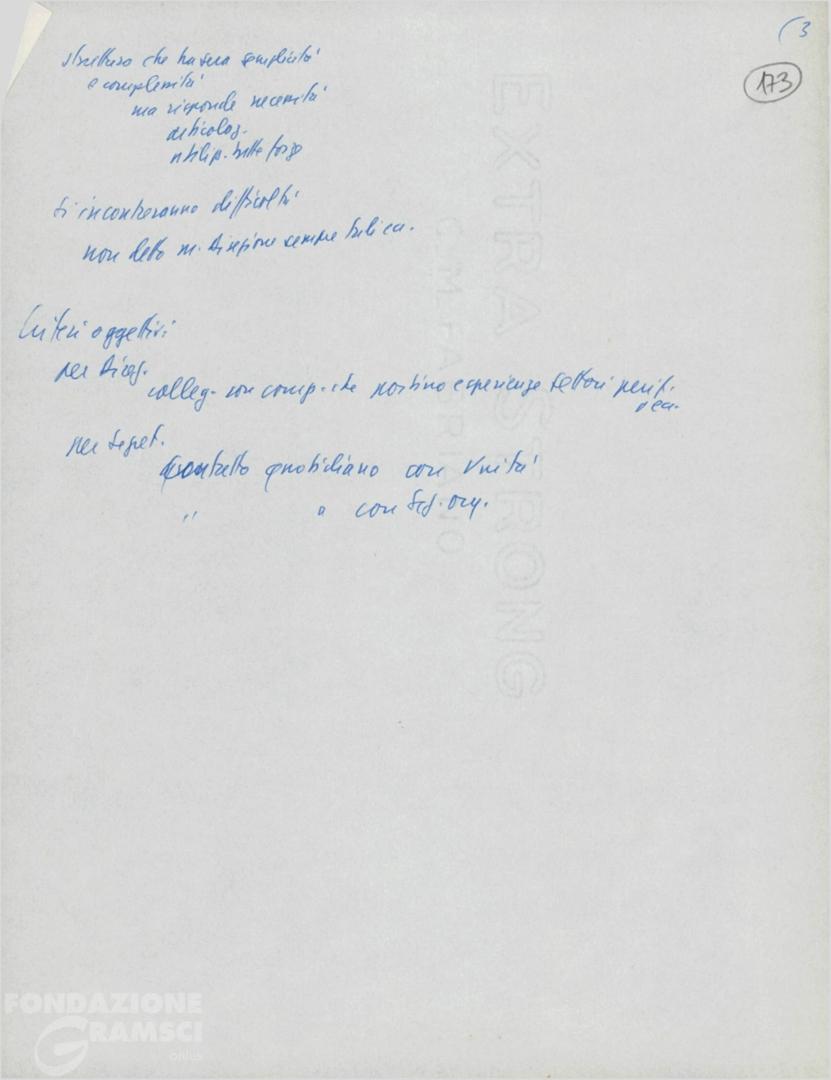 (3
173
struttura che ha sua semplicità
e complessità
ma risponde necessità
articolaz.
utiliz. tutte forze
Si incontreranno difficoltà
non detto m. Direzione sempre
Criteri oggettivi
per Direz.
colleg. con comp. che portino esperienze settori perif.
per Segret.
contatto quotidiano con Unità
" " con Sez. org.
EXTRA STRONG
C.M. FABRIANO
FONDAZIONE
GRAMSCI
onlus